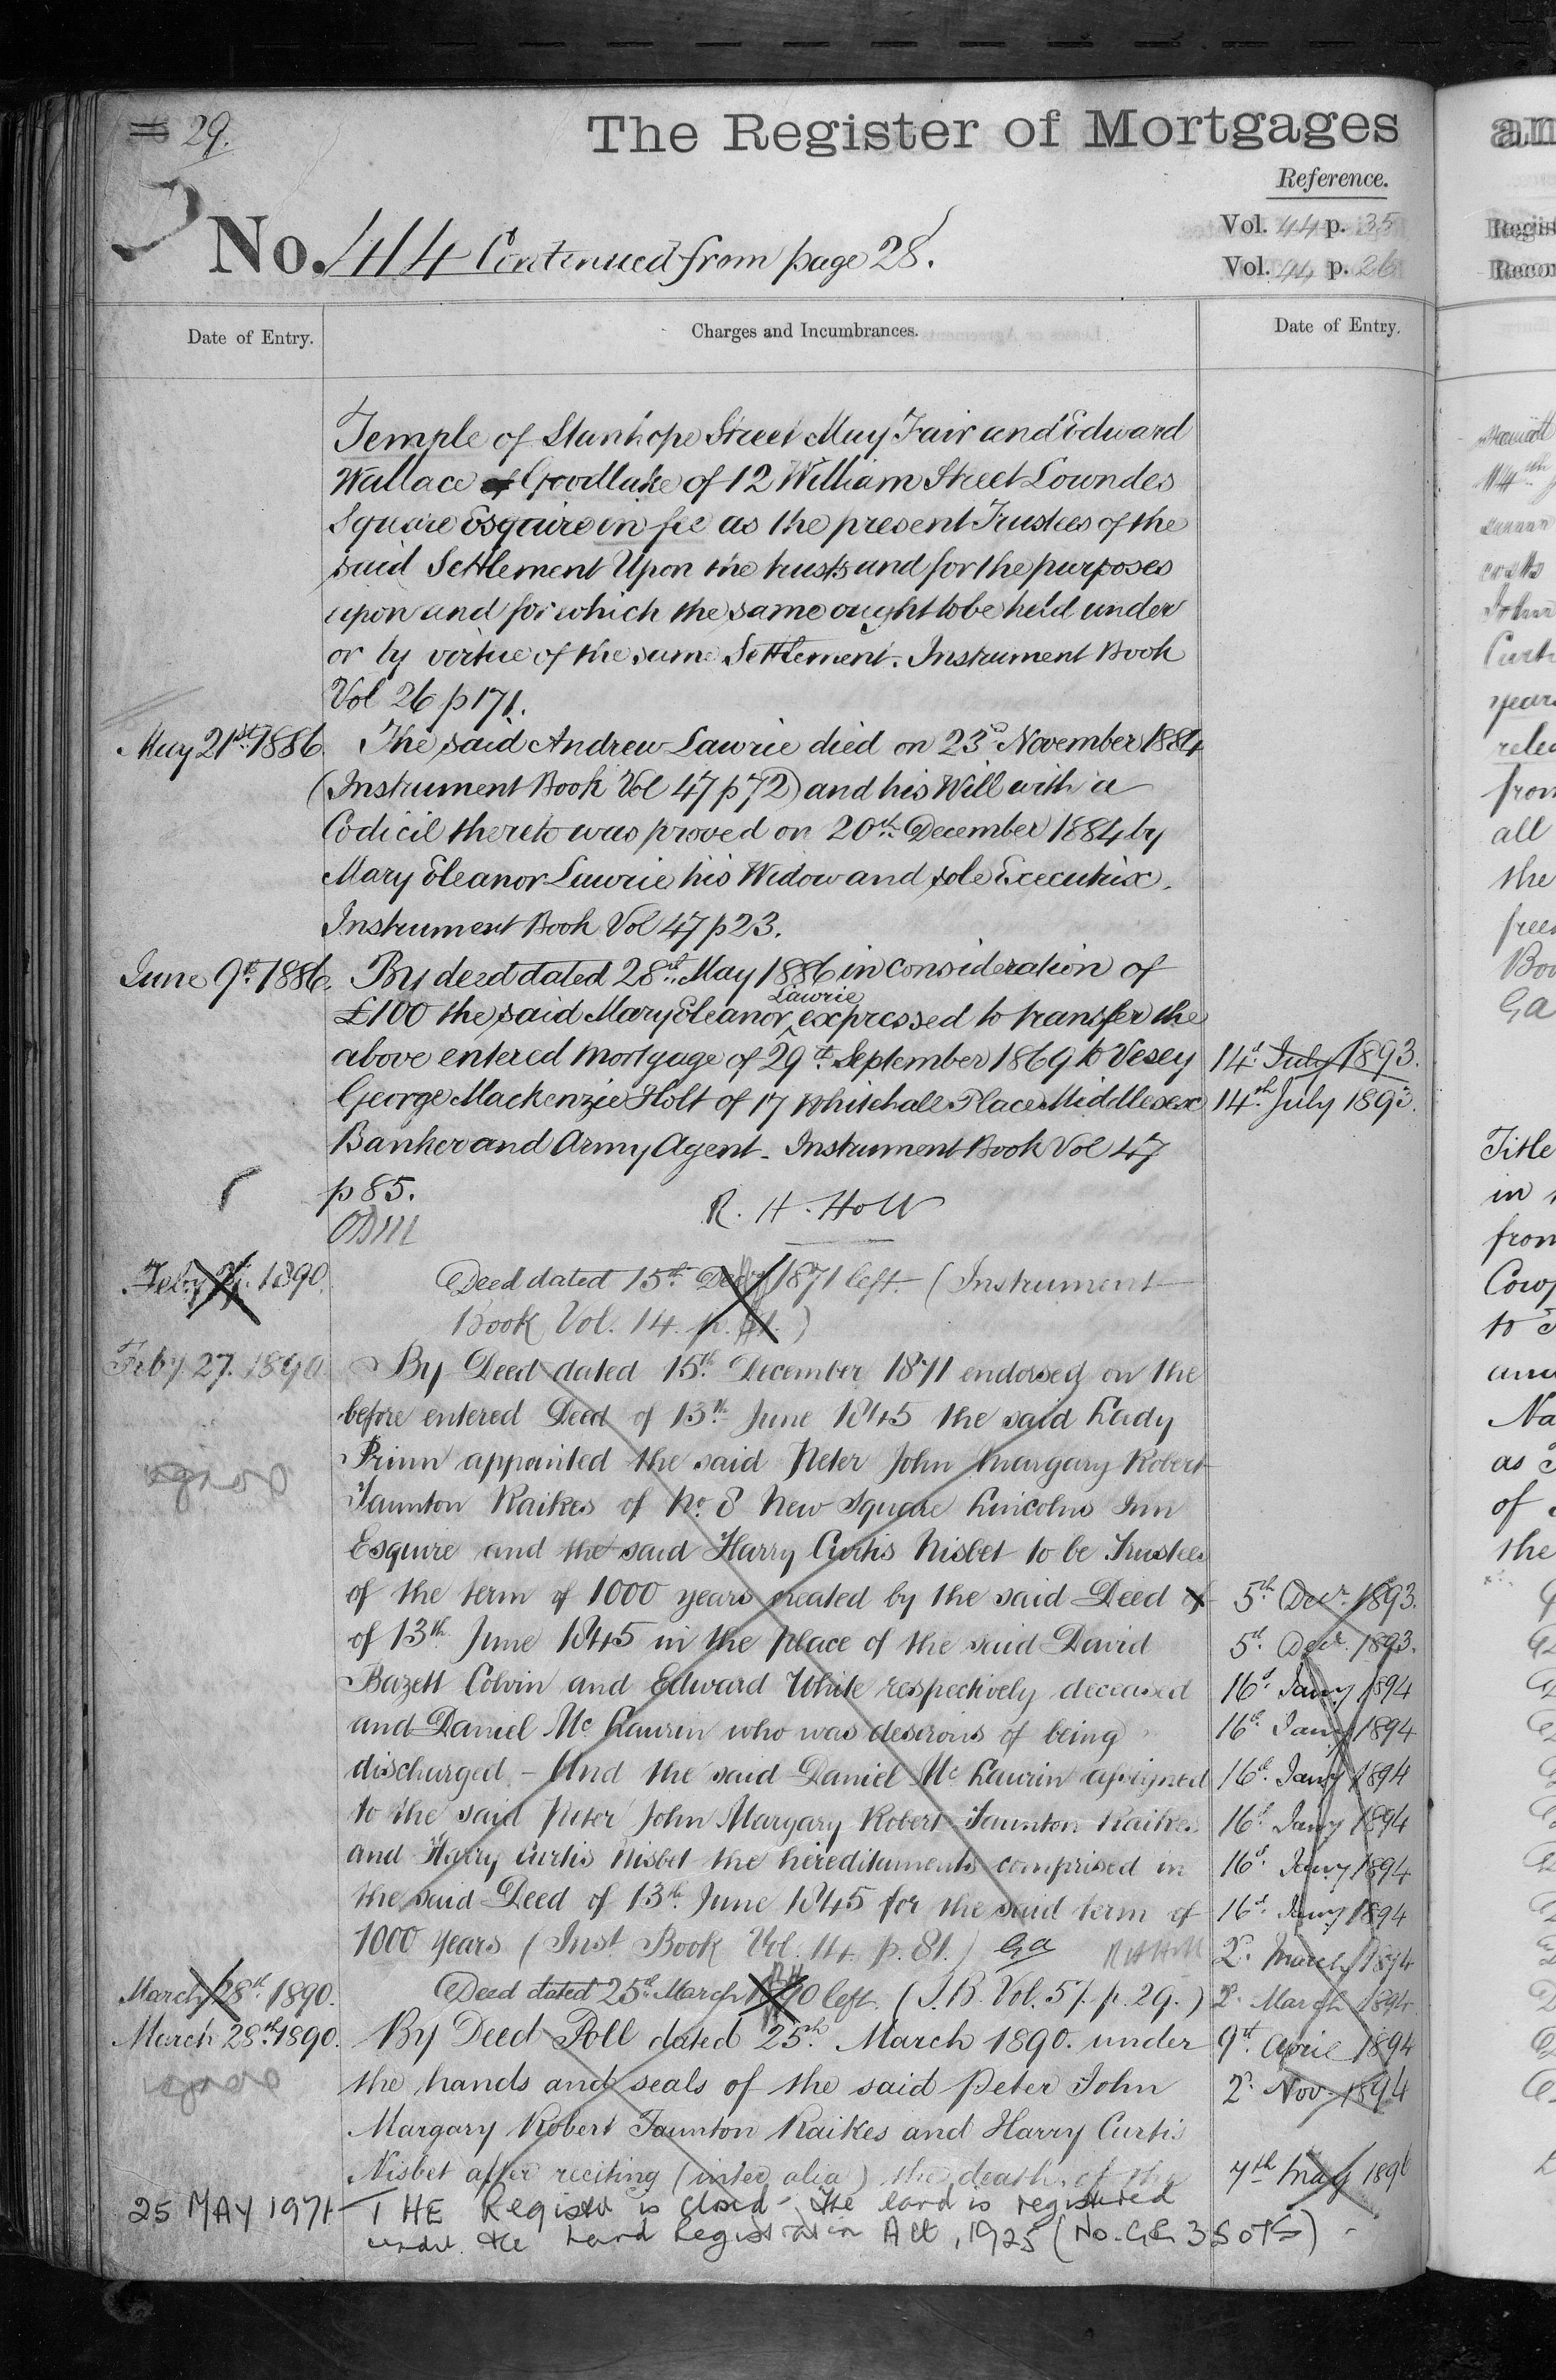 29.
The Register of Mortgages
Reference.
Vol. 44 p. 35
Vol. 44 p. 26
No. 414 Continued from page 28.
Date of Entry.
Charges and Incumbrances.
Date of Entry.
Temple of Stanhope Street May Fair and Edward
Wallace Goodlake of 12 William Street Lowndes
Square Esquire in fee as the present Trustees of the
said Settlement Upon the trusts and for the purposes
upon and for which the same ought to be held under
or by virtue of the same Settlement. Instrument Book
Vol 26 p 171.
May 21st 1886. The said Andrew Lawrie died on 23rd November 1884
(Instrument Book Vol 47 p 72) and his Will with a
Codicil thereto was proved on 20th December 1884 by
Mary Eleanor Lawrie his Widow and sole Executrix.
Instrument Book Vol 47 p 23.
June 9th 1886. By deed dated 28th May 1886 in consideration of
£100 the said Mary Eleanor Lawrie expressed to transfer the
above entered mortgage of 29th September 1869 to Vesey
George Mackenzie Holt of 17 Whitehall Place Middlesex
Banker and Army Agent - Instrument Book Vol 47
p 85.
R. H. Holt
14th July 1893.
14th July 1893.
Feby 27. 1890. Deed dated 15th Decr 1871 left - (Instrument
Book Vol. 14. p. 81.)
Feby. 27. 1890. By Deed dated 15th December 1871 endorsed on the
before entered Deed of 13th June 1845 the said Lady
Prinn appointed the said Peter John Margary Robert
Taunton Raikes of No. 8 New Square Lincolns Inn
Esquire and the said Harry Curtis Nisbet to be Trustees
of the term of 1000 years created by the said Deed of
of 13th June 1845 in the place of the said David
Bazett Colvin and Edward White respectively deceased
and Daniel Mc Laurin who was desirous of being
discharged - And the said Daniel Mc Laurin assigned
to the said Peter John Margary Robert Taunton Raikes
and Harry Curtis Nisbet the hereditaments comprised in
the said Deed of 13th June 1845 for the said term of
1000 years (Inst. Book Vol. 14. p. 81.)
5th Decr. 1893.
5th Decr. 1893.
16th Jany 1894
16th Jany 1894
16th Jany 1894
16th Jany 1894
16th Jany 1894
16th Jany 1894
2d March 1894
2d March 1894
9th April 1894
2d Nov. 1894
7th May 1896
March 28th 1890. Deed dated 25th March 1890 left. (I.B. Vol. 51. p. 29.)
March 28th 1890. By Deed Poll dated 25th March 1890. under
the hands and seals of the said Peter John
Margary Robert Taunton Raikes and Harry Curtis
Nisbet after reciting (inter alia) the death of the
25 MAY 1971 - THE Register is closed - The land is registered
under the Land Registration Act, 1925